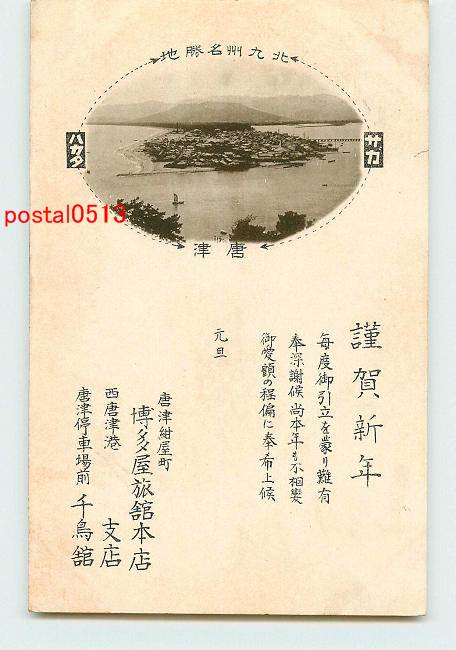 北九州名勝地
サガ
ハカタ
唐津
postal0513
謹賀新年
毎度御引立を蒙り難有
奉深謝候尚本年も不相変
御愛顧の程偏に奉希上候
元旦
唐津紺屋町
博多屋旅舘本店
西唐津港
支店
唐津停車場前
千鳥舘